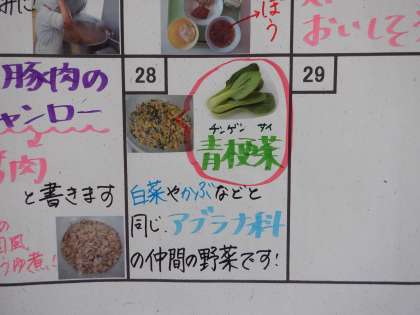 ぼう
おいしそ
豚肉の
ャンロー
肉
と書きます
28
チンゲン サイ
青梗菜
白菜やかぶなどと
同じ、アブラナ科
の仲間の野菜です!
29